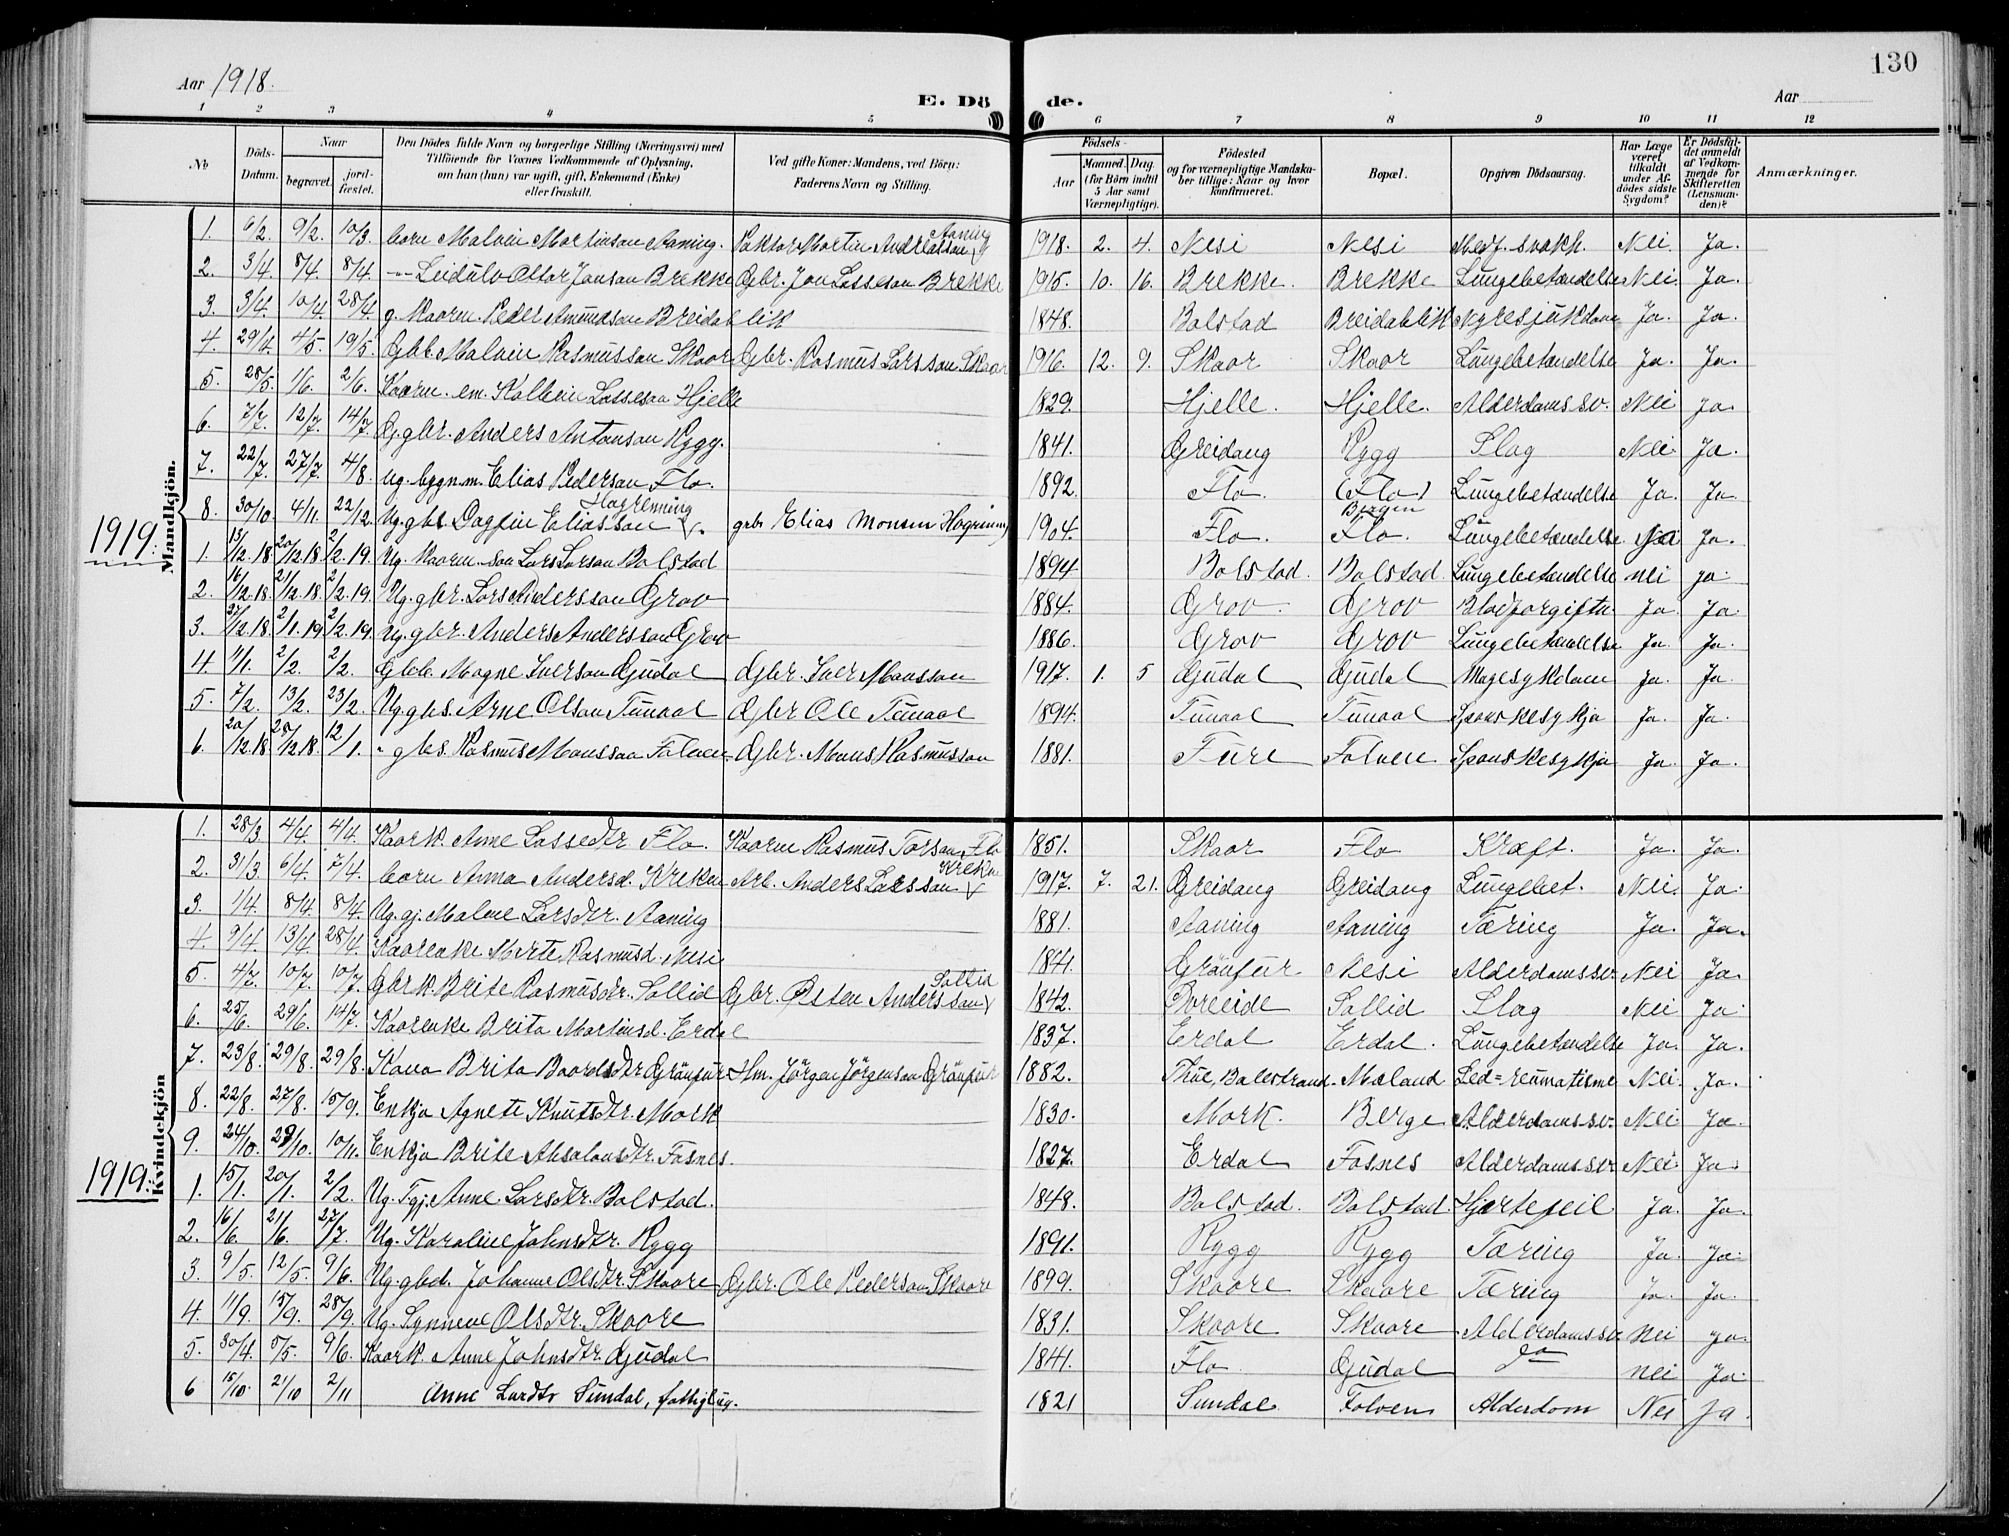 130
Aar 1918.
E. Dö de.
Aar
1 2 3 4 5 6 7 8 9 10 11 12
No
Döds-Datum.
Naar
begravet.
jordfæstet.
Den Dödes fulde Navn og borgerlige Stilling (Næringsvei) med
Tilföiende for Voxnes Vedkommende af Oplysning,
om han (hun) var ugift, gift, Enkemand (Enke)
eller fraskilt.
Ved gifte Koner: Mandens, ved Börn:
Faderens Navn og Stilling.
Födsels-
Aar
Maaned. Dag.
(for Börn indtil
5 Aar samt
Værnepligtige).
Födested
og for værnepligtige Mandska-
ber tillige: Naar og hvor
konfirmeret.
Bopæl.
Opgiven Dödsaarsag.
Har Læge
været
tilkaldt
under Af-
dödes sidste
Sygdom?
Er Dödsfal-
det anmeldt
af Vedkom-
mende for
Skifteretten
(Lensman-
den)?
Anmærkninger.
Mandkjön.
1. 6/2. 9/2. 10/3. born Malvin Martinson Aaning. Martin Andreasson Aaning 1918. 2. 4. Nesi Nesi Medf. svakh. Nei Ja.
2. 3/4. 8/4. 8/4. Leidulv Ottar Jonson Brekke Gbr. Jon Lasseson Brekke 1915. 10. 16. Brekke. Brekke Lungebetændelse Nei. Ja.
3. 3/4. 10/4. 28/4. g. Kaarm. Peder Amundson Breidablik 1848. Bolstad Breidablik Nyresjukdom Ja. Ja.
4. 29/4. 4/5. 19/5. Gbb. Malvin Rasmusson Skaar Gbr. Rasmus Larsson Skaar 1916. 12. 9. Skaar Skaar Lungebetændelse Ja. Ja.
5. 28/5. 1/6. 2/6. Kaarm. em. Kolbein Lasseson Hjelle 1829. Hjelle. Hjelle. Alderdomssv. Nei Ja.
6. 7/7. 12/7. 14/7. G. gbr. Anders Antonson Rygg. 1841. Greidung Rygg Slag Nei. Ja.
7. 22/7. 27/7. 4/8. ug. bygn.m. Elias Pederson Flo. 1892. Flo. (Flo) Bergen Lungebetændelse Ja. Ja.
8. 30/10. 4/11. 22/12. Ug. gbs. Dagfin Eliasson Hogrenning gbr Elias Monsen Hogrenning 1904. Flo. Flo. Lungebetændelse. Ja Ja.
1919.
1. 15/12.18 20/12.18 2/2.19. Ug. Kaarm. son Lars Larson Bolstad 1894 Bolstad. Bolstad. Lungebetændelse nei ja.
2. 16/12.18. 21/12.18. 2/2.19. Ug. gbr. Lars Andersson Grov 1884. Grov. Grov Blodforgiftn. Ja. Ja.
3. 27/12.18. 2/1.19. 2/2.19. Ug. gbr. Anders Andersson Grov 1886. Grov Grov Lungebetændelse Ja. Ja.
4. 11/1. 2/2. 2/2. Gbb. Magne Iverson Gjudal Gbr. Iver Monsson 1917. 1. 5 Gjudal Gjudal Magesykdom Ja. Ja.
5. 7/2. 13/2. 23/2. Ug. gbs. Arne Olson Tunaal Gbr Ole Tunaal 1894. Tunaal Tunaal Spanskesykja Ja. Ja.
6. 20/12.18. 28/12.18. 12/1. " gbs. Rasmus Monsson Folven. Gbr. Mons Rasmusson 1881. Fure Folven. Spanskesykja Ja. Ja.
Kvindekjön
1. 28/3. 4/4. 4/4. Kaark. Anne Lassedtr. Flo. Kaarm Rasmus Torson Flo 1851. Skaar Flo Kræft. Ja. Ja.
2. 31/3. 6/4. 7/4. born Anna Andersd. Kreken Arb. Anders Larsson Kreken 1917. 7. 21. Greidung Greidung Lungebet. Nei. Ja.
3. 1/4. 8/4. 8/4. Ug. gj. Malene Larsdtr. Aaning 1881. Aaning Aaning Tæring Ja. Ja.
4. 9/4. 13/4. 28/4. Kaarenke Marte Rasmusd. Nesi 1841. Graufur. Nesi Alderdomssv. Nei Ja.
5. 4/7. 10/7. 10/7. Gbrk. Brite Rasmusdtr. Sollid Gbr. Östen Andersson Sollid 1842. Boreide Sollid Slag Nei Ja.
6. 25/6. 29/6. 14/7. Kaarenke Brita Martinsd. Erdal 1837. Erdal Erdal. Lungebetændelse Ja. Ja.
7. 23/8. 29/8. 29/8. Kona Brita Baardsdtr Graufur Hm. Jörgen Jörgenson Graufur 1882. Thue, Balestrand. Mæland Led=reumatisme Nei. Ja.
8. 22/8. 27/8. 15/9. Enkja Agnete Knutsdtr. Mork 1830. Mork. Berge Alderdomssv. Nei. Ja.
9. 24/10. 29/10. 10/11. Enkja Brite Absalonsdtr. Fosnes. 1827. Erdal Fosnes Alderdomssv Nei Ja.
1919.
1. 15/1. 20/1. 2/2. Ug. Fgj. Anne Larsdtr. Bolstad. 1848. Bolstad. Bolstad. Hjartefeil Ja. Ja.
2. 16/6. 21/6. 27/7. Ug. Karoline Johnsdtr. Rygg 1891. Rygg Rygg Tæring Ja. Ja.
3. 9/5. 12/5. 9/6. Ug. gbd. Johanne Olsdtr. Skaare Gbr. Ole Pederson Skaare 1899. Skaare Skaare Tæring Ja. Ja.
4. 11/9. 15/9. 28/9. Ug. Synneve Olsdtr. Skaare 1831. Skaare Skaare Alderdomssv nei ja.
5. 30/4. 5/5. 9/6. Kaark. Anne Johnsdtr. Gjudal 1841. Flo Gjudal do nei Ja.
6 15/10. 21/10 2/11 Anne Larsdtr Sundal, fattiglug. 1821 Sundal Folven Alderdom Nei Ja.